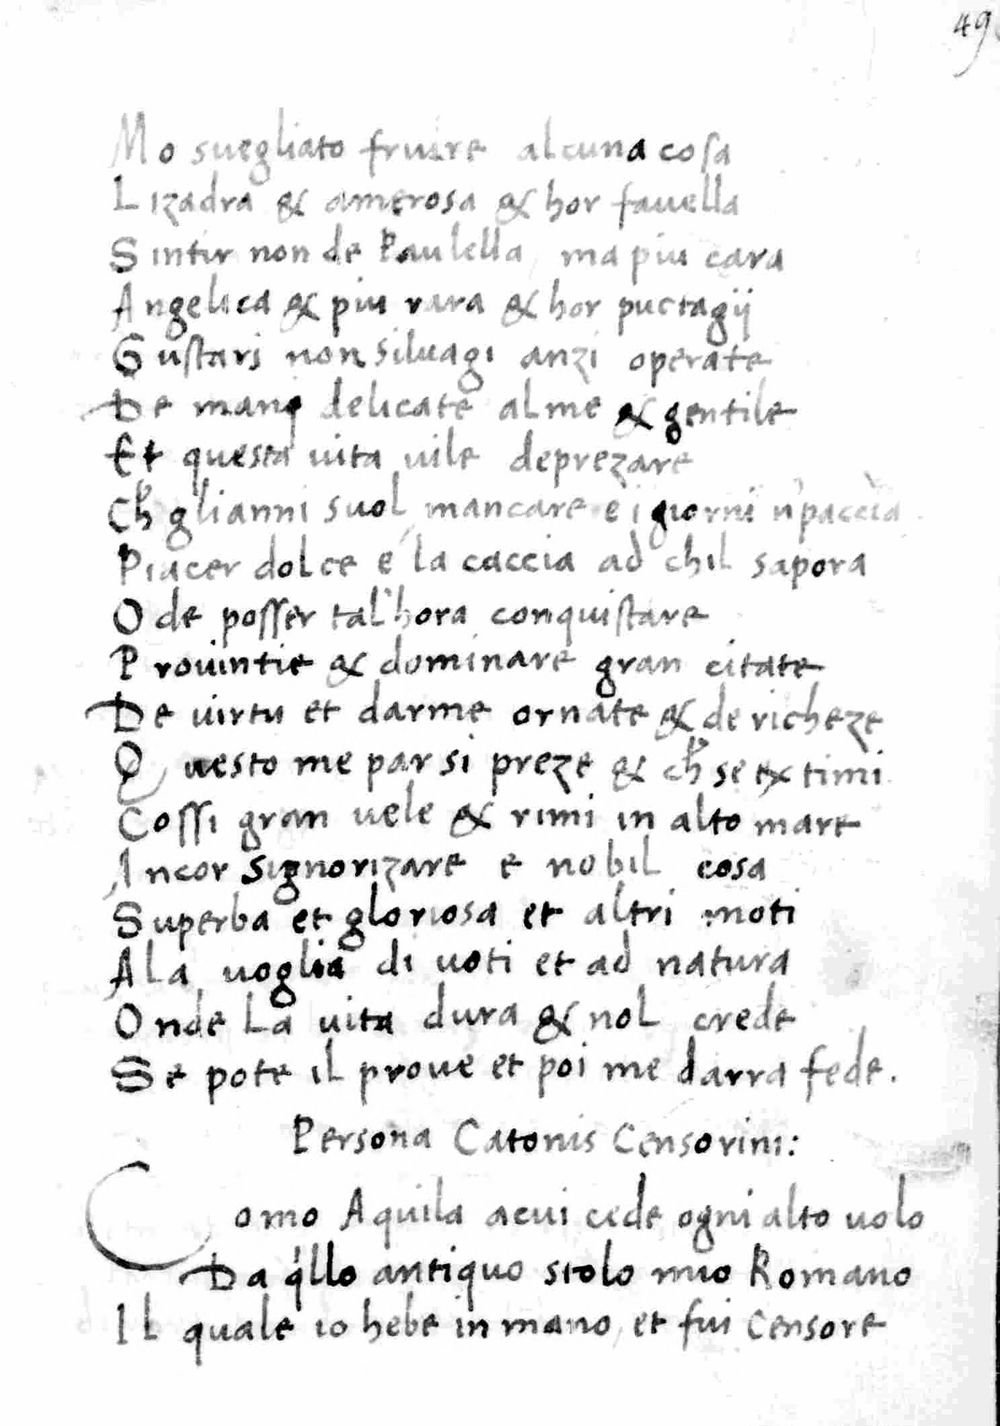 49
Mo suegliato fruire alcuna cosa
Lizadra & amerosa & hor fauella
Sintir non de Paulella ma piu cara
Angelica & piu rara & hor puctagij
Gustari non siluagi anzi operate
De manj delicate alme & gentile
Et questa uita uile deprezare
Ch̄ gl'ianni suol mancare e i giorni n'paccia
Piacer dolce e la caccia ad chil sapora
O de posser tal'hora conquistare
Prouintie & dominare gran citate
De uirtu et darme ornate & de richeze
Questo me par si preze & ch̄ se extimi
Cossi gran uele & rimi in alto mare
Ancor signorizare e nobil cosa
Superba et gloriosa et altri moti
Ala uoglia di uoti et ad natura
Onde la uita dura & nol crede
Se pote il proue et poi me darra fede.
Persona Catonis Censorini:
Como Aquila acui cede ogni alto uolo
Da q'llo antiquo stolo mio Romano
Il quale io hebe in mano, et fui Censore